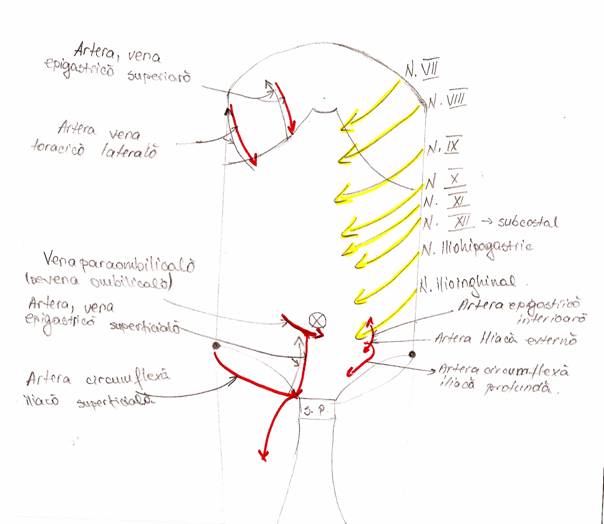 Artera, vena
epigastrică superioară
Artera vena
toracică laterală
Vena paraombilicală
(sevena ombilicală)
Artera, vena
epigastrică superficială
Artera circumflexă
iliacă superficială
N. VII
N. VIII
N. IX
N X
N. XI
N. XII → subcostal
N. Iliohipogastric
N. Ilioinghinal.
Artera epigastrică
inferioară
Artera Iliacă externă
Artera circumflexă
iliacă profundă.
S.P.